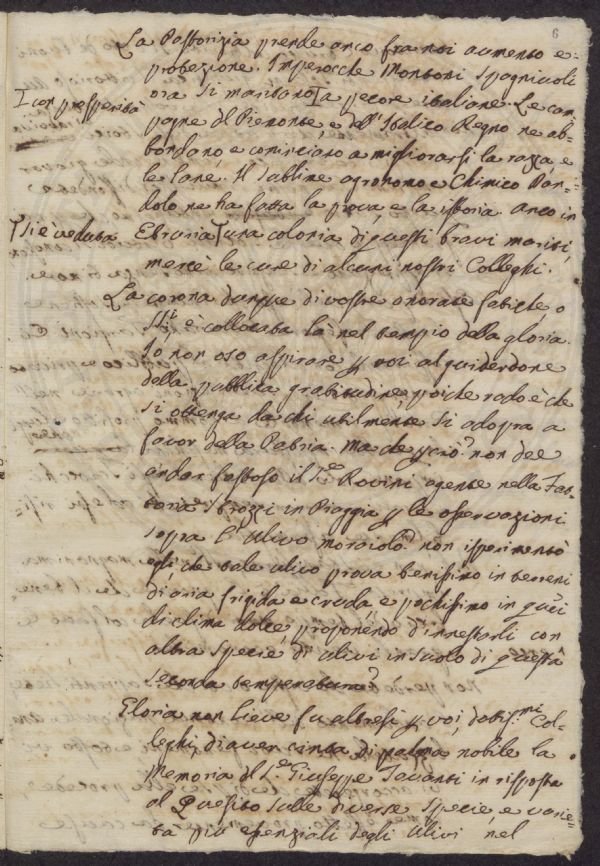 6
La Pastorizia prende anco fra noi aumento e
protezione. Imperocche Montoni Spagnuoli
ora si maritano Γ a pecore italiane. Le cam
Γ con prosperità
pagne del Piemonte e dell'Italico Regno ne ab-
bondano e cominciano a migliorarsi la razza, e
le lane. Il sublime agronomo e Chimico Dan-
dolo ne ha fatta la prova, e la istoria. Anco in
Etruria Γ una colonia di questi bravi mariti,
Γ si è veduta
mercè le cure di alcuni nostri Colleghi.
La corona dunque di vostre onorate fatiche o
SS.ri è collocata là nel tempio della gloria.
Io non oso aspirare p voi al guiderdone
della pubblica gratitudine, poiche rado è che
si ottenga da chi utilmente si adopra a
favor della Patria. Ma che perciò? non dee
andar fastoso il Sr. Rovini agente nella Fat-
toria Strozzi in Piaggia p le osservazioni
sopra l'Ulivo morajolo? non isperimentò
egli, che tale ulivo prova benissimo in terreni
di aria frigida e cruda, e pochissimo in quei
di clima dolce, proponendo d'innestarli con
altra specie di ulivi in suolo di questa
seconda temperatura?
Gloria non lieve fu altresì p voi, dottis.mi Col-
leghi, di aver cinta di palma nobile la
Memoria del Sr. Giuseppe Tavanti in risposta
al Quesito sulle diverse specie, e varie=
tà più essenziali degli Ulivi nel